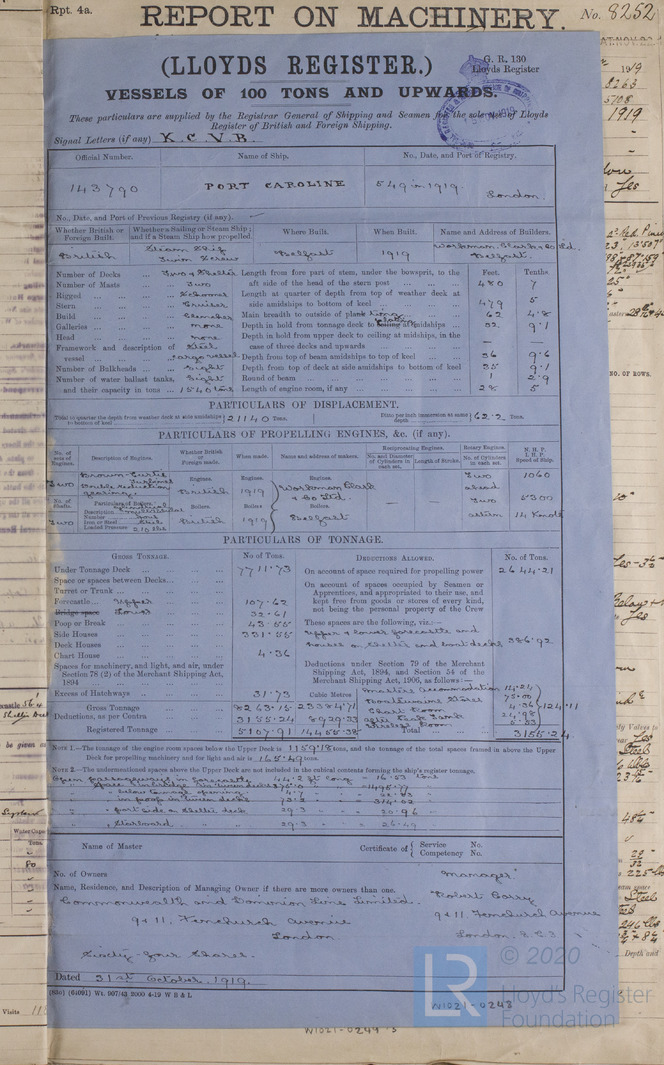 Rpt. 4a.
REPORT ON MACHINERY.
No. 8252
(LLOYDS REGISTER.)
G. R. 130
Lloyds Register
VESSELS OF 100 TONS AND UPWARDS.
These particulars are supplied by the Registrar General of Shipping and Seamen for the sole use of Lloyds
Register of British and Foreign Shipping.
Signal Letters (if any) K.C.V.B.
Official Number. Name of Ship. No., Date, and Port of Registry.
143790 PORT CAROLINE 549 in 1919. London.
No., Date, and Port of Previous Registry (if any).
Whether British or Foreign Built. Whether a Sailing or Steam Ship; and if a Steam Ship how propelled. Where Built. When Built. Name and Address of Builders.
British Steam Ship Twin Screw Belfast 1919 Workman Clark & Co Ltd. Belfast.
Number of Decks Two & Shelter Length from fore part of stem, under the bowsprit, to the Feet. Tenths.
Number of Masts Two aft side of the head of the stern post 480 7
Rigged Schooner Length at quarter of depth from top of weather deck at
Stern Cruiser side amidships to bottom of keel 479 5
Build Clencher Main breadth to outside of plank 62 4.8
Galleries none Depth in hold from tonnage deck to ceiling at midships 32 9.1
Head none Depth in hold from upper deck to ceiling at midships, in the
Framework and description of vessel Steel cargo vessel case of three decks and upwards — —
Depth from top of beam amidships to top of keel 36 9.6
Number of Bulkheads Eight Depth from top of deck at side amidships to bottom of keel 35 9.1
Number of water ballast tanks, Eight Round of beam 1 2.9
and their capacity in tons 1540 tons Length of engine room, if any 28 5
PARTICULARS OF DISPLACEMENT.
Total to quarter the depth from weather deck at side amidships to bottom of keel 21140 Tons. Ditto per inch immersion at same depth 62.2 Tons.
PARTICULARS OF PROPELLING ENGINES, &c. (if any).
No. of sets of Engines. Description of Engines. Whether British or Foreign made. When made. Name and address of makers. Reciprocating Engines. Rotary Engines. N. H. P. I. H. P. Speed of Ship.
No. and Diameter of Cylinders in each set. Length of Stroke. No. of Cylinders in each set.
Two Brown-Curtis Turbines Double Reduction gearing. Engines. British Engines. 1919 Engines. Workman Clark & Co Ltd. Two ahead 1060
No. of Shafts. Particulars of Boilers. Boilers. Boilers Boilers. Two 5300
Two Description
Number Four
Iron or Steel Steel
Loaded Pressure 210 lbs British 1919 Belfast astern 14 Knots
PARTICULARS OF TONNAGE.
GROSS TONNAGE. No of Tons. DEDUCTIONS ALLOWED. No. of Tons.
Under Tonnage Deck 7711.73 On account of space required for propelling power 2644.21
Space or spaces between Decks
Turret or Trunk
On account of spaces occupied by Seamen or Apprentices, and appropriated to their use, and kept free from goods or stores of every kind, not being the personal property of the Crew
Forecastle Upper 107.62
Bridge space Lower 32.61
Poop or Break 43.55 These spaces are the following, viz.:—
Side Houses 331.55 Upper & lower forecastle and
Deck Houses houses on shelter and boat decks 386.92
Chart House 4.36
Spaces for machinery, and light, and air, under Section 78 (2) of the Merchant Shipping Act, 1894
Deductions under Section 79 of the Merchant Shipping Act, 1894, and Section 54 of the Merchant Shipping Act, 1906, as follows:—
Excess of Hatchways 31.73 Cubic Metres Master's Accommodation 14.21
Boatswains Stores 75.00
Gross Tonnage 8263.15 23384.71 Chart Room 4.36 124.11
Deductions, as per Contra 3155.24 8929.33 After Peak Tank 24.98
Wireless Room 5.53
Registered Tonnage 5107.91 14455.38 Total 3155.24
NOTE 1.—The tonnage of the engine room spaces below the Upper Deck is 1159.18 tons, and the tonnage of the total spaces framed in above the Upper
Deck for propelling machinery and for light and air is 165.49 tons.
NOTE 2.—The undermentioned spaces above the Upper Deck are not included in the cubical contents forming the ship's register tonnage.
Open passageways in forecastle 44.2 ft long 16.53 tons
" in poop in tween decks 73.2 " " 314.02 "
" port side on shelter deck 29.3 " " 20.96 "
" Starboard " 29.3 " " 26.49 "
Name of Master Certificate of { Service No.
Competency No.
No. of Owners
Manager
Name, Residence, and Description of Managing Owner if there are more owners than one. Robert Barry
Commonwealth and Dominion Line Limited. 9 & 11 Fenchurch Avenue
9 & 11. Fenchurch Avenue London. E.C.3
London.
Sixty-four Shares.
Dated 31st October. 1919.
(830) (64091) Wt. 907/43 2000 4-19 W B & L
W1021-0248
W1021-0249
LR
© 2020
Lloyd's Register
Foundation